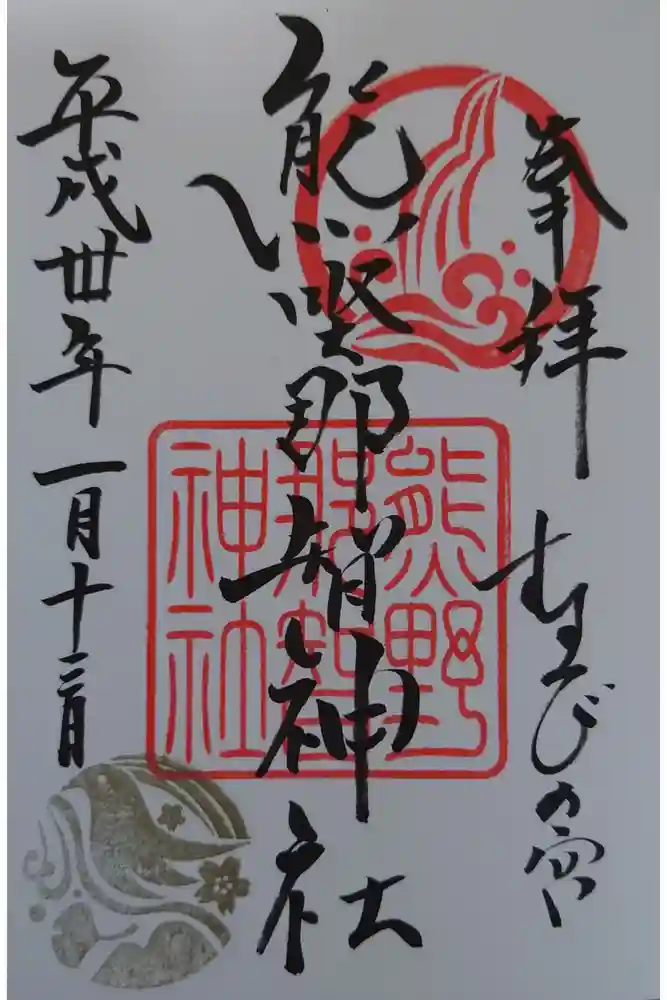 奉拝
むすびの宮
熊野那智神社
熊野
那智
神社
平成卅年一月十二日